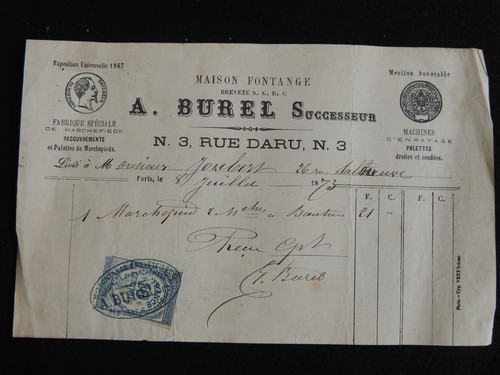 Exposition Universelle 1867
MAISON FONTANGE
Mention honorable
BREVETÉ S. G. D. G
A. BUREL SUCCESSEUR
FABRIQUE SPÉCIALE
DE MARCHEPIEDS
RECOUVREMENTS
et Palettes de Marchepieds.
N. 3, RUE DARU, N. 3
MACHINES
D'ENRAYAGE
PALETTES
droites et coudées.
Livré à Monsieur Joubert 26 rue
Paris, le 8 Juillet 1873
F. C. F. C.
1 Marchepied 2 à 21 "
Pour Cpt
Burel
A. BUREL